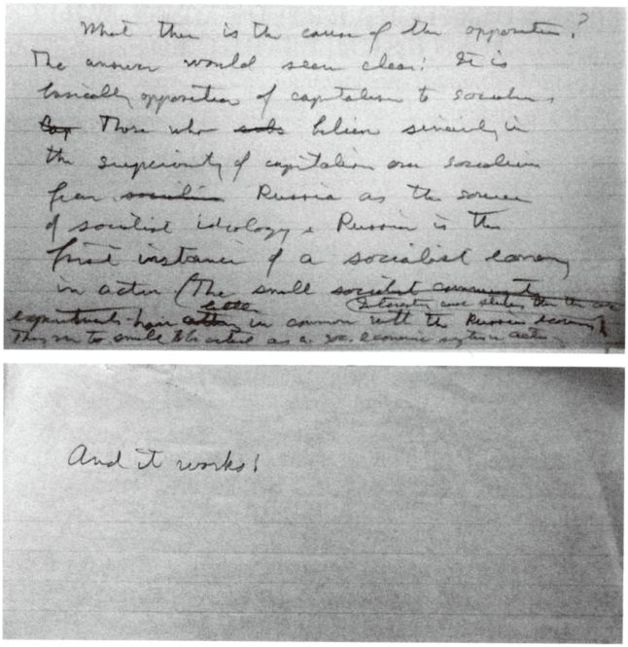 What then is the cause of the opposition?
The answer would seem clear: It is
basically opposition of capitalism to socialism.
Those who believe sincerely in
the superiority of capitalism over socialism
fear socialism Russia as the source
of socialist ideology. Russia is the
first instance of a socialist economy
in action (The small socialist
little
experiments have in common with the Russian economy)
They are to small to be as a economic system
And it works!